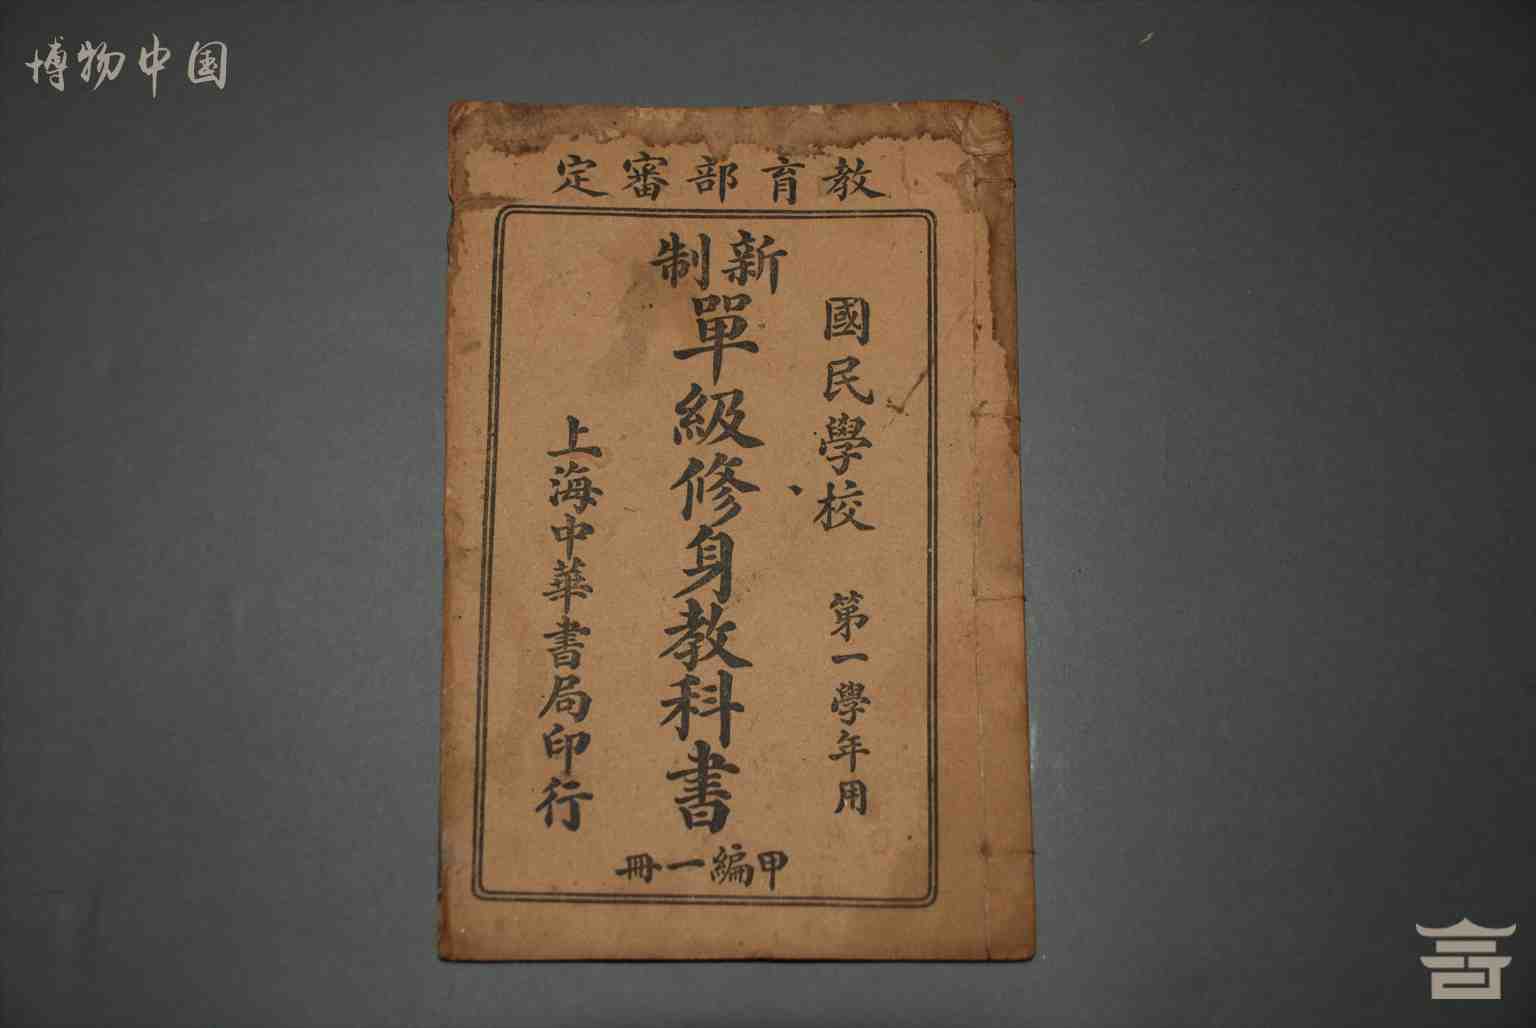 博物中国
教育部審定
國民學校 第一學年用
新制
單級修身教科書
甲編一冊
上海中華書局印行